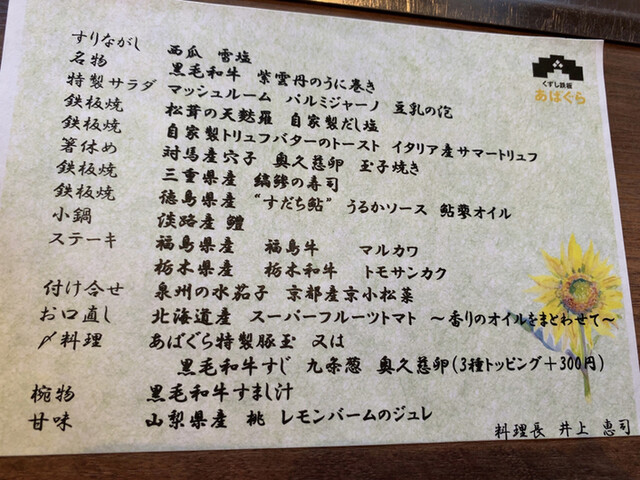 くずし鉄板
あばぐら
すりながし 西瓜 雪塩
名物 黒毛和牛 紫雲丹のうに巻き
特製サラダ マッシュルーム パルミジャーノ 豆乳の泡
鉄板焼 松茸の天麩羅 自家製だし塩
鉄板焼 自家製トリュフバターのトースト イタリア産サマートリュフ
箸休め 対馬産穴子 奥久慈卵 玉子焼き
鉄板焼 三重県産 縞鯵の寿司
鉄板焼 徳島県産 “すだち鮎” うるかソース 鮎蓼オイル
小鍋 淡路産 鱧
ステーキ 福島県産 福島牛 マルカワ
栃木県産 栃木和牛 トモサンカク
付け合せ 泉州の水茄子 京都産京小松菜
お口直し 北海道産 スーパーフルーツトマト ～香りのオイルをまとわせて～
〆料理 あばぐら特製豚玉 又は
黒毛和牛すじ 九条葱 奥久慈卵(3種トッピング＋300円)
椀物 黒毛和牛すまし汁
甘味 山梨県産 桃 レモンバームのジュレ
料理長 井上 恵司